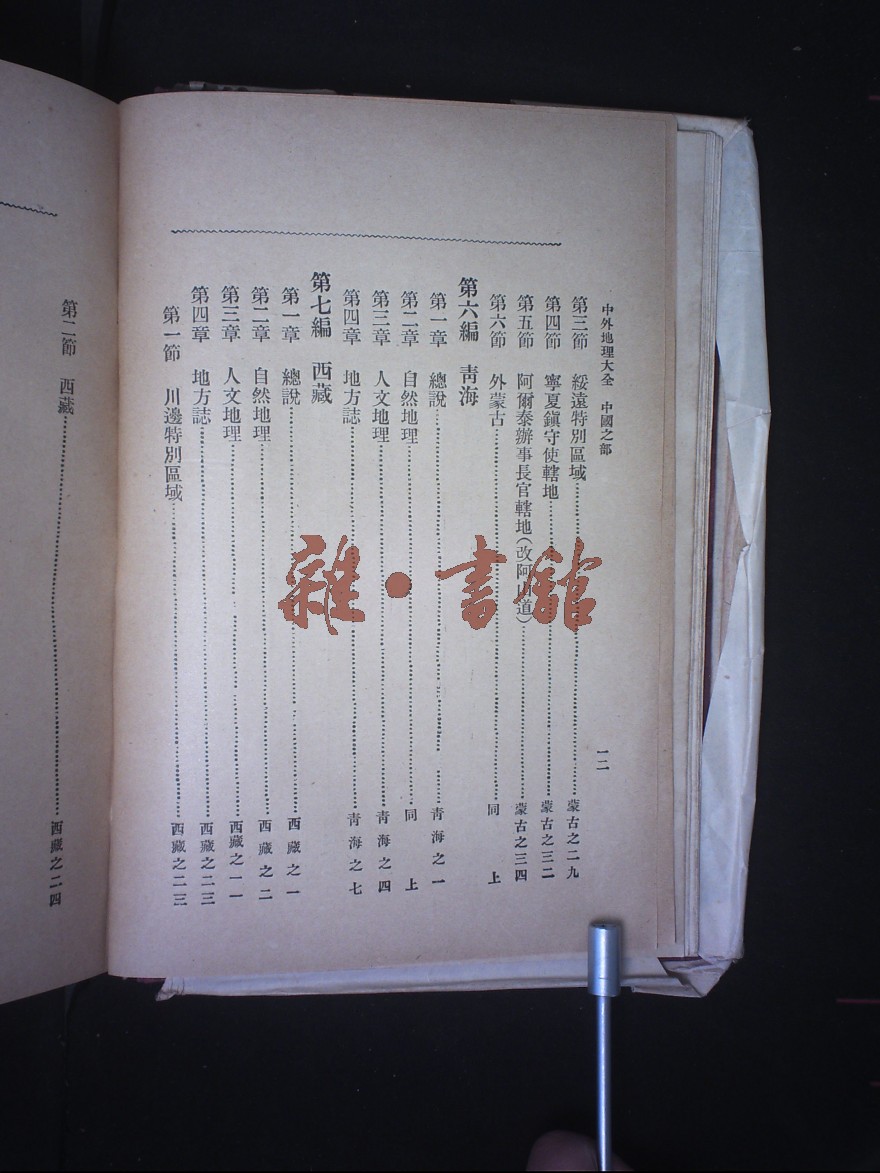 中外地理大全　中國之部
一二
第三節　綏遠特別區域……蒙古之二九
第四節　寧夏鎮守使轄地……蒙古之三二
第五節　阿爾泰辦事長官轄地(改阿山道)……蒙古之三四
第六節　外蒙古……同上
第六編　靑海
第一章　總說……靑海之一
第二章　自然地理……同上
第三章　人文地理……靑海之四
第四章　地方誌……靑海之七
第七編　西藏
第一章　總說……西藏之一
第二章　自然地理……西藏之二
第三章　人文地理……西藏之一一
第四章　地方誌……西藏之二三
第一節　川邊特別區域……西藏之二三
第二節　西藏……西藏之二四
雜·書館